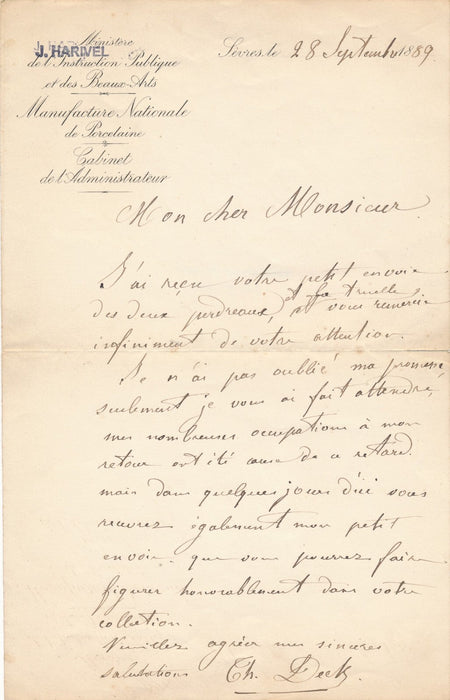 Ministère
J. HARIVEL
de l'Instruction Publique
et des Beaux-Arts
Manufacture Nationale
de Porcelaine
Cabinet
de l'Administrateur
Sèvres, le 28 Septembre 1889
Mon cher Monsieur
J'ai reçu votre petit envoi
des deux perdreaux, et la truelle et vous remercie
infiniment de votre attention.
Je n'ai pas oublié ma promesse
seulement je vous ai fait attendre,
mes nombreuses occupations à mon
retour ont été cause de ce retard.
mais dans quelques jours d'ici vous
recevrez également mon petit
envoi que vous pourrez faire
figurer honorablement dans votre
collection.
Veuillez agréer mes sincères
salutations Th. Deck